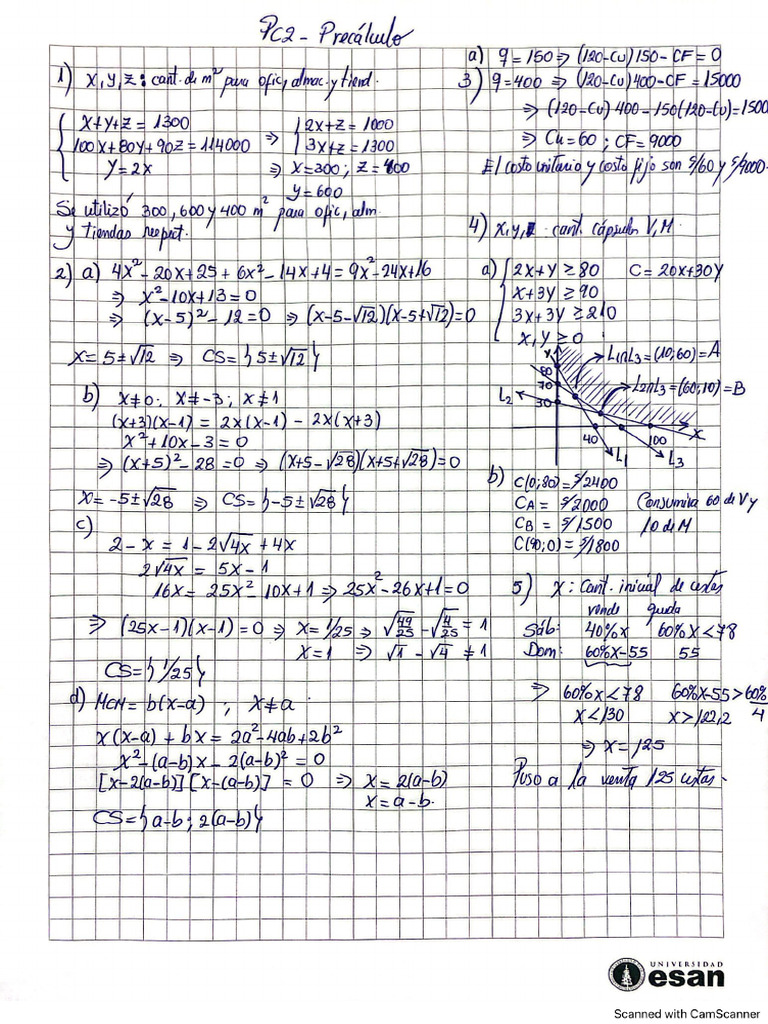 PC2 - Precálculo
1) x, y, z : cant. de m² para ofic, almac. y tiend.
x+y+z = 1300
100x+80y+90z = 114000
y = 2x
⇒ 2x+z = 1000
3x+z = 1300
⇒ x=300 ; z=400
y=600
Se utilizó 300, 600 y 400 m² para ofic, alm.
y tiendas respect.
2) a) 4x²-20x+25 + 6x²-14x+4 = 9x²-24x+16
⇒ x²-10x+13 = 0
⇒ (x-5)²-12 = 0 ⇒ (x-5-√12)(x-5+√12)=0
x = 5±√12 ⇒ CS={5±√12}
b) x≠0; x≠-3; x≠1
(x+3)(x-1) = 2x(x-1) - 2x(x+3)
x²+10x-3=0
⇒ (x+5)²-28 = 0 ⇒ (x+5-√28)(x+5+√28)=0
x = -5±√28 ⇒ CS={-5±√28}
c)
2-x = 1-2√4x + 4x
2√4x = 5x-1
16x = 25x²-10x+1 ⇒ 25x²-26x+1=0
⇒ (25x-1)(x-1)=0 ⇒ x=1/25 ⇒ √49/25 - √4/25 = 1
x=1 ⇒ √1 - √4 ≠ 1
CS={1/25}
d) MCM = b(x-a) ; x≠a
x(x-a) + bx = 2a²-4ab+2b²
x²-(a-b)x - 2(a-b)² = 0
[x-2(a-b)][x-(a-b)] = 0 ⇒ x=2(a-b)
x=a-b.
CS={a-b ; 2(a-b)}
a) q=150 ⇒ (120-Cu)150-CF=0
3) q=400 ⇒ (120-Cu)400-CF=15000
⇒ (120-Cu)400-150(120-Cu)=1500
⇒ Cu=60 ; CF=9000
El costo unitario y costo fijo son S/60 y S/9000.
4) x, y, : cant. cápsulas V, M
a) 2x+y ≥ 80 C=20x+30y
x+3y ≥ 90
3x+3y ≥ 210
x, y ≥ 0
L₁∩L₃=(10;60)=A
L₂∩L₃=(60;10)=B
y
80
70
30
L₂
40
100
x
L₁
L₃
b) C(0;80)=S/2400
CA = S/2000 Consumirá 60 de V y
CB = S/1500 10 de M
C(90;0)=S/1800
5) x: Cant. inicial de cestas
vende queda
Sáb: 40%x 60%x<78
Dom: 60%x-55 55
⇒ 60%x<78 60%x-55>60%
4
x<130 x>122,2
⇒ x=125
Puso a la venta 125 cestas.
UNIVERSIDAD
esan
Scanned with CamScanner